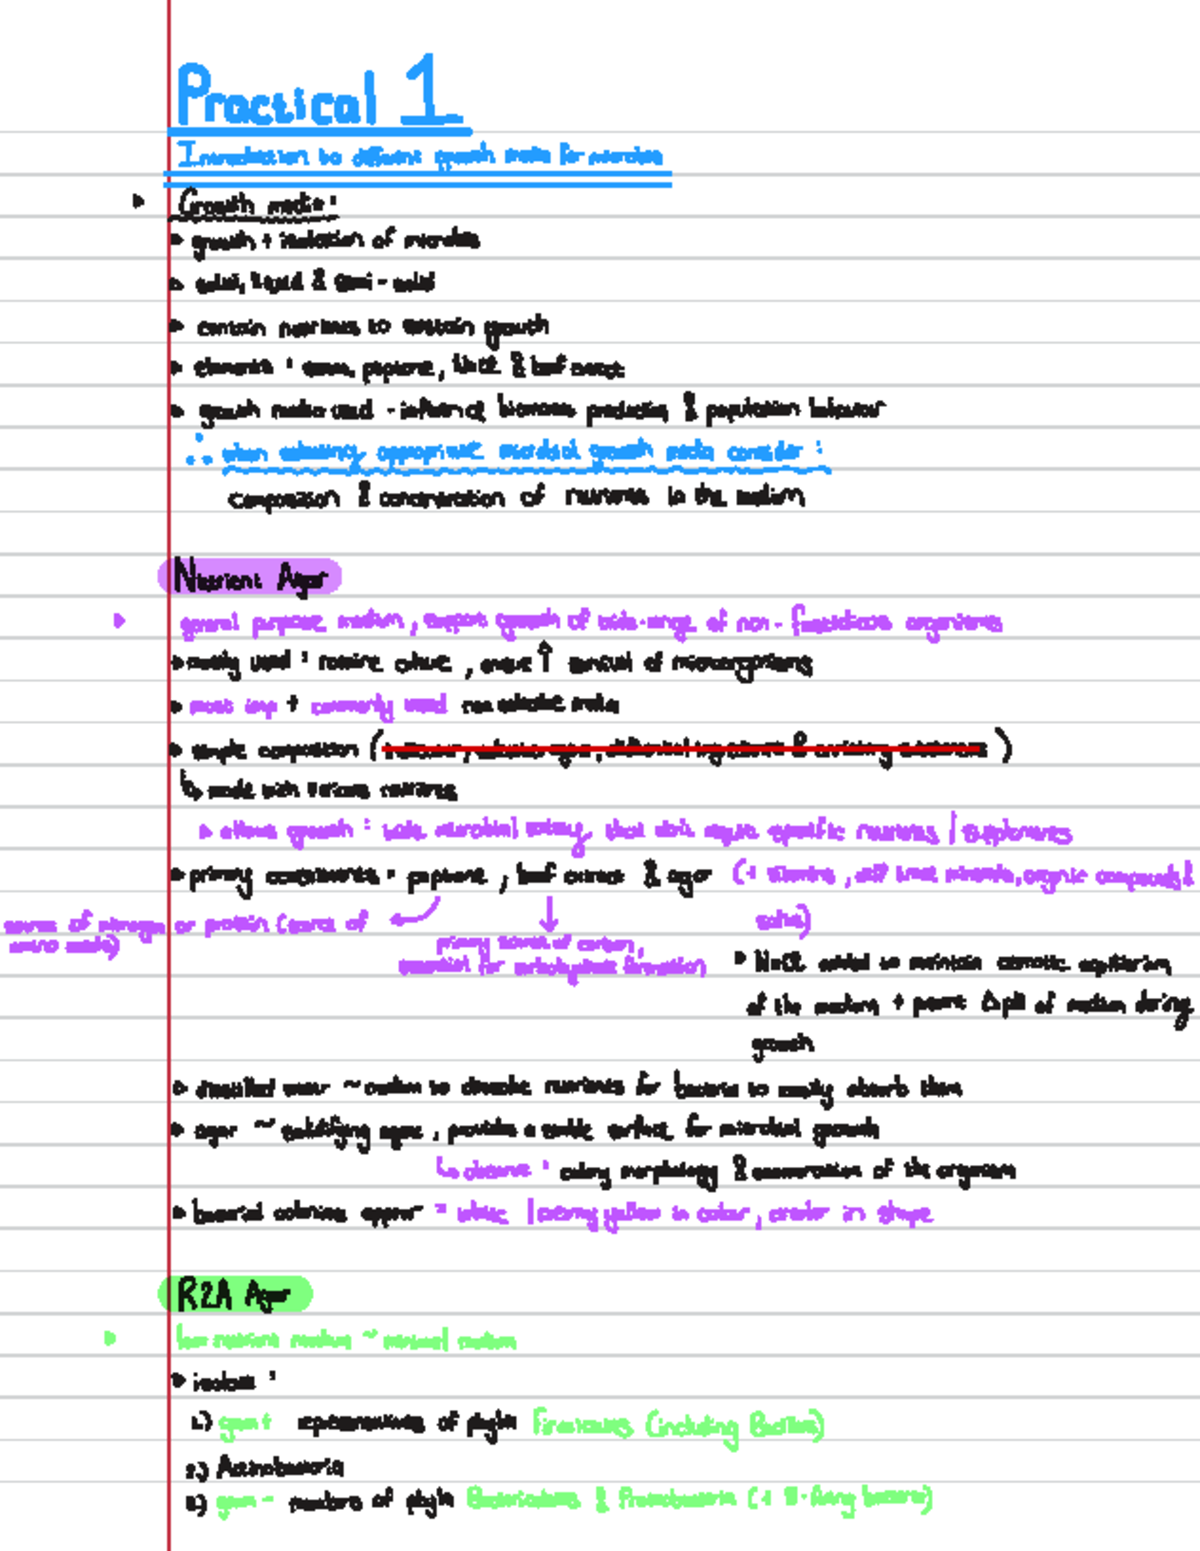 Practical 1
Introduction to different growth media for microbes
Growth media:
growth + isolation of microbes
solid, liquid & semi-solid
contain nutrients to sustain growth
elements : peptone, & beef extract
growth media used - influence biomass production & population behaviour
∴ when selecting appropriate microbial growth media consider :
composition & concentration of nutrients in the medium
Nutrient Agar
general purpose medium, support growth of wide-range of non-fastidious organisms
mostly used : routine culture, ensure ↑ survival of microorganisms
most imp + commonly used non selective media
simple composition ( )
↳ made with various nutrients
allows growth : wide microbial variety, that don't require specific nutrients / supplements
primary constituents : peptone, beef extract & agar (+ vitamins, trace minerals, organic compounds &
source of nitrogen or protein (source of
amino acids)
salts)
primary source of carbon,
essential for carbohydrate formation
NaCl added to maintain osmotic equilibrium
of the medium + prevent Δ pH of medium during
growth
distilled water ~ medium to dissolve nutrients for bacteria to easily absorb them
agar ~ solidifying agent, provides a stable surface for microbial growth
↳ observe : colony morphology & enumeration of the organism
bacterial colonies appear = white / creamy yellow in colour, circular in shape
R2A Agar
low nutrient medium ~ minimal medium
isolates :
1.) gram + representatives of phyla Firmicutes (including Bacillus)
2.) Actinobacteria
3.) gram - members of phyla Bacteroidetes & Proteobacteria (+ N-fixing bacteria)